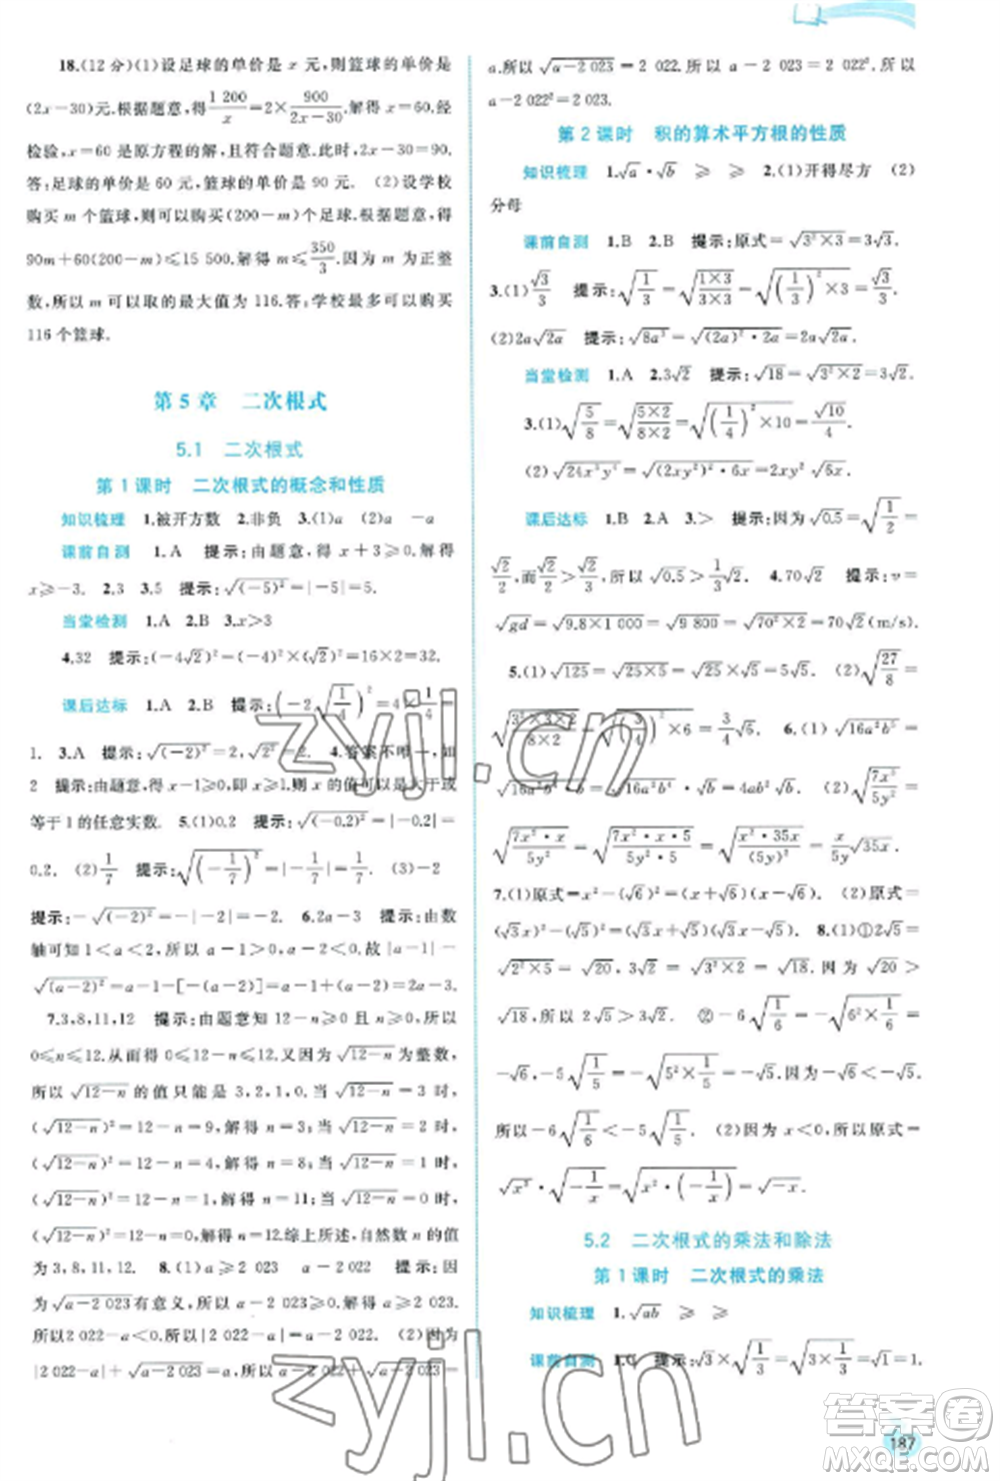 18.(12分)(1)设足球的单价是 x 元,则篮球的单价是
(2x-30)元.根据题意,得 1 200/x=2×900/(2x-30).解得 x=60.经
检验,x=60 是原方程的解,且符合题意.2x-30=90.
答:足球的单价是 60 元,篮球的单价是 90 元. (2)设学校
购买 m 个篮球,则可以购买(200-m)个足球.根据题意,得
90m+60(200-m)≤15 500.解得 m≤350/3.因为 m 为正整
数,所以 m 可以取的最大值为 116.答:学校最多可以购买
116 个篮球.
第 5 章 二次根式
5.1 二次根式
第 1 课时 二次根式的概念和性质
知识梳理 1.被开方数 2.非负 3.(1)a (2)a -a
课前自测 1.A 提示:由题意,得 x+3≥0.解得
x≥-3. 2.3 3.5 提示:√(-5)²=|-5|=5.
当堂检测 1.A 2.B 3.x>3
4.32 提示:(-4√2)²=(-4)²×(√2)²=16×2=32.
课后达标 1.A 2.B 提示:(-2√(1/4))²=
1. 3.A 提示:√(-2)²=2,√2²=2. 4.答案不唯一,如
2 提示:由题意,得 x-1≥0,即 x≥1,则 x 的值可以是大于或
等于 1 的任意实数. 5.(1)0.2 提示:√(-0.2)²=|-0.2|=
0.2. (2)1/7 提示:√(-1/7)²=|-1/7|=1/7. (3)-2
提示:-√(-2)²=-|-2|=-2. 6.2a-3 提示:由数
轴可知 1<a<2,所以 a-1>0,a-2<0.故|a-1|-
√(a-2)²=a-1-[-(a-2)]=a-1+a-2=2a-3.
7.3,8,11,12 提示:由题意知 12-n≥0,n≥0,所以
0≤n≤12.从而得 0≤12-n≤12.又因为√(12-n)为整数,
所以√(12-n)的值只能是 3,2,1,0.当√(12-n)=3 时,
(√(12-n))²=9=12-n,解得 n=3;当√(12-n)=2 时,
(√(12-n))²=4=12-n,解得 n=8;当√(12-n)=1 时,
(√(12-n))²=1=12-n,解得 n=11;当√(12-n)=0 时,
(√(12-n))²=0=12-n,解得 n=12.综上所述,自然数 n 的值
为 3,8,11,12. 8.(1)a≥2 023 a-2 022 提示:因为
√(a-2 023)有意义,所以 a-2 023≥0.解得 a≥2 023.
所以2 022-a<0.所以|2 022-a|=a-2 022. (2)因为
|2 022-a|+√(a-2 023)=a,所以a-2 022+√(a-2 023)=
a.所以√(a-2 023)=2 022.所以 a-2 023=2 022².所以
a-2 022²=2 023.
第 2 课时 积的算术平方根的性质
知识梳理 1.√a·√b ≥ ≥ 2.(1)开得尽方 (2)
分母
课前自测 1.B 2.B 提示:原式=√(3²×3)=3√3.
3.(1)√3/3 提示:√(1/3)=√((1×3)/(3×3))=√((1/3)²×3)=√3/3.
(2)2a√(2a) 提示:√(8a³)=√((2a)²·2a)=2a√(2a).
当堂检测 1.A 2.3√2 提示:√18=√(3²×2)=3√2.
3.(1)√(5/8)=√((5×2)/(8×2))=√((1/4)²×10)=√10/4.
(2)√(24x³y²)=√((2xy)²·6x)=2xy√(6x).
课后达标 1.B 2.A 3.> 提示:因为√0.5=√(1/2)=
√2/2,而√2/2>√(1/3),所以√0.5>√(1/3). 4.70√2 提示:v=
√(gd)=√(9.8×1 000)=√(9 800)=√(70²×2)=70√2(m/s).
5.(1)√125=√(25×5)=√25×√5=5√5. (2)√(27/8)=
√((3²×3×2)/(8×2))=√((3/4)²×6)=3/4√6. 6.(1)√(16a²b⁵)=
√(16a²b⁴·b)=√(16a²b⁴)×√b=4ab²√b. (2)√(7x³/5y²)=
√(7x²·x/5y²)=√(7x²·x·5/5y²·5)=√(x²·35x/(5y)²)=x/5y√(35x).
7.(1)原式=x²-(√6)²=(x+√6)(x-√6). (2)原式=
(√3x)²-(√5)²=(√3x+√5)(√3x-√5). 8.(1)①2√5=
√(2²×5)=√20,3√2=√(3²×2)=√18.因为√20>
√18,所以 2√5>3√2. ②-6√(1/6)=-√(6²×1/6)=
-√6,-5√(1/5)=-√(5²×1/5)=-√5.因为-√6<-√5,
所以-6√(1/6)<-5√(1/5). (2)因为 x<0,所以原式=
√x²·√(-1/x)=√(x²·(-1/x))=√(-x).
5.2 二次根式的乘法和除法
第 1 课时 二次根式的乘法
知识梳理 1.√(ab) ≥ ≥
课前自测 1.C 提示:√3×√(1/3)=√(3×1/3)=√1=1.
187
zyjl.cn
zyjl.cn
答案圈
MXQE.COM